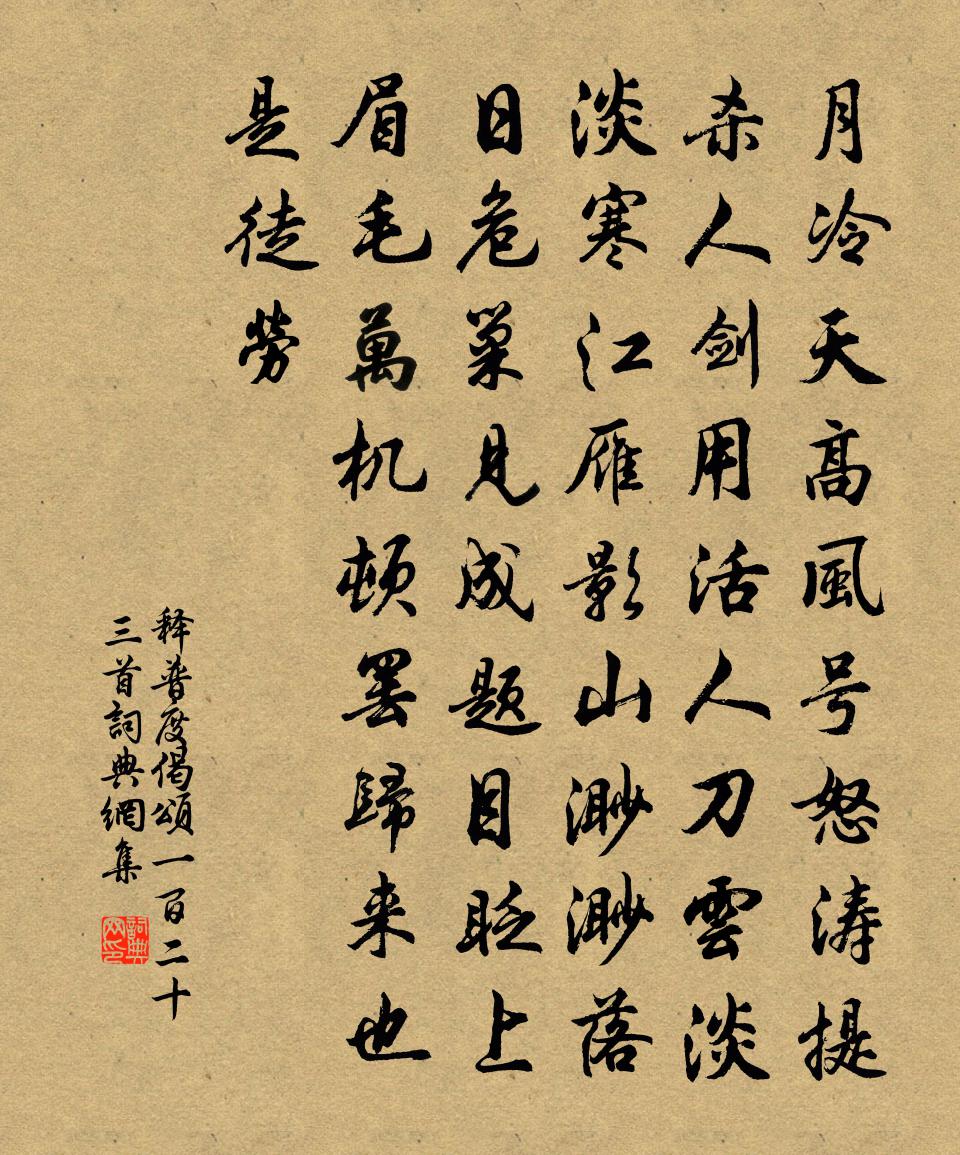 月冷天髙風号怒涛提
杀人剑用活人刀雲淡
淡寒江雁影山渺渺落
日危巢見成题目眨上
眉毛萬机頓罢歸来也
是徒勞
释普度偈頌一百二十
三首詞典網集
詞典
网印